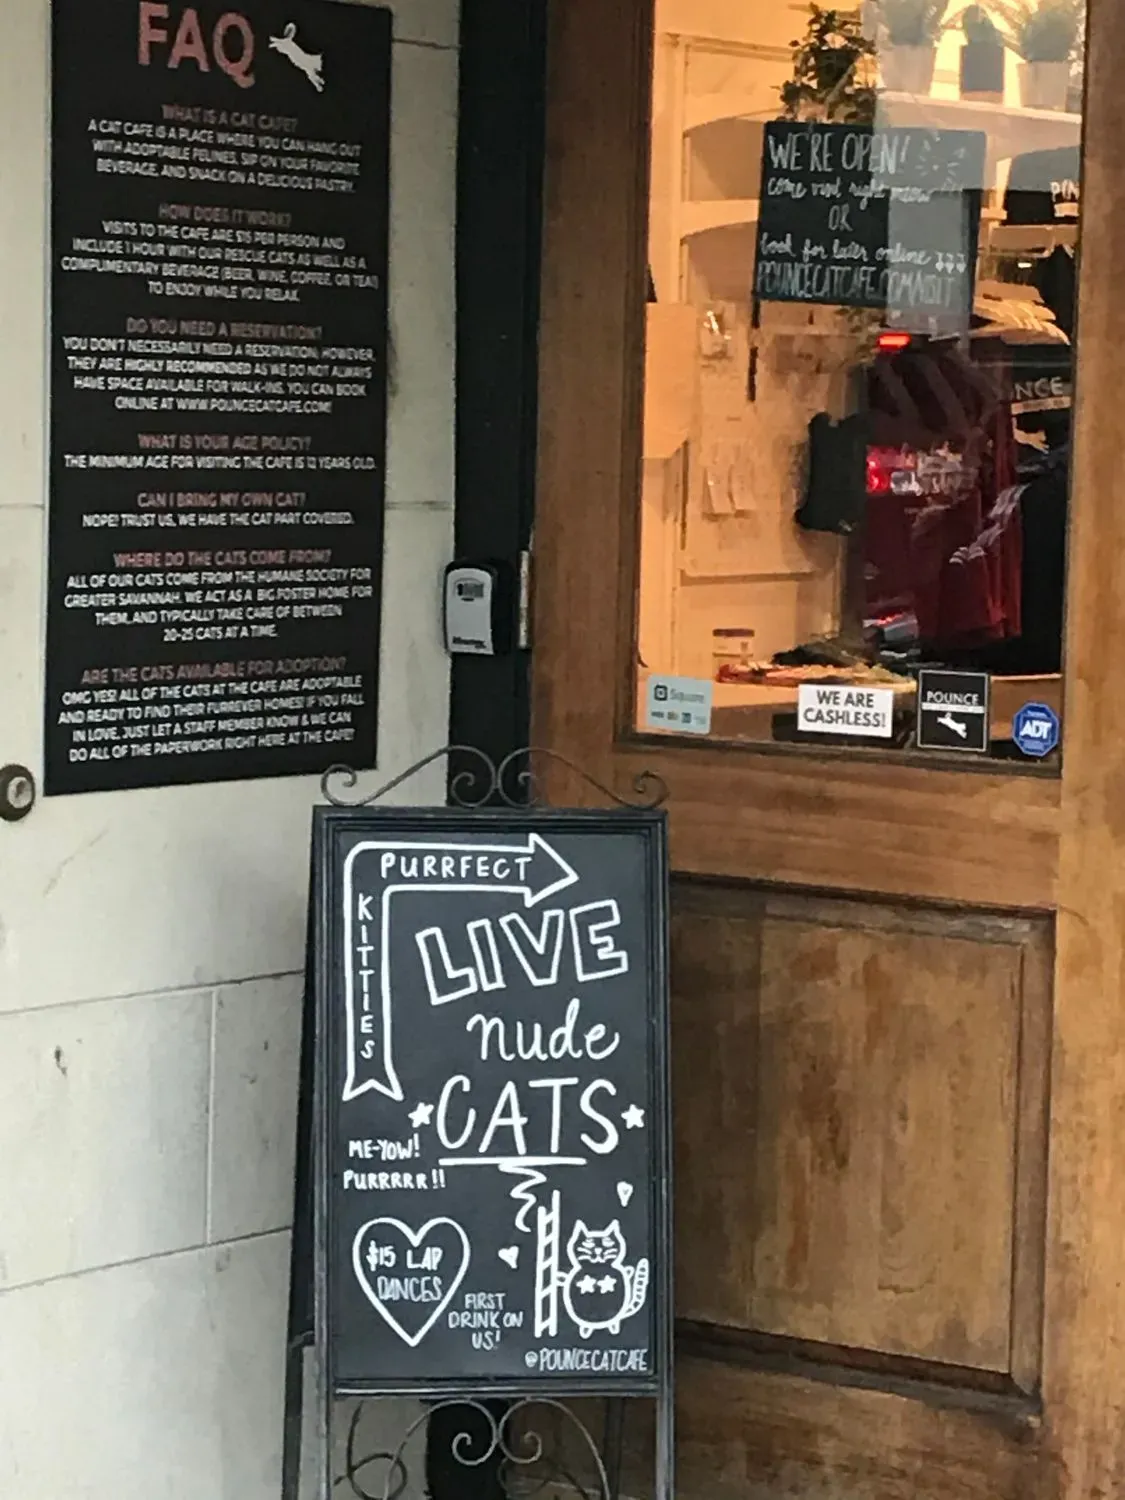 FAQ
WHAT IS A CAT CAFE?
A CAT CAFE IS A PLACE WHERE YOU CAN HANG OUT
WITH ADOPTABLE FELINES, SIP ON YOUR FAVORITE
BEVERAGE, AND SNACK ON A DELICIOUS PASTRY.
HOW DOES IT WORK?
VISITS TO THE CAFE ARE $15 PER PERSON AND
INCLUDE 1 HOUR WITH OUR RESCUE CATS AS WELL AS A
COMPLIMENTARY BEVERAGE (BEER, WINE, COFFEE, OR TEA)
TO ENJOY WHILE YOU RELAX.
DO YOU NEED A RESERVATION?
YOU DON'T NECESSARILY NEED A RESERVATION; HOWEVER,
THEY ARE HIGHLY RECOMMENDED AS WE DO NOT ALWAYS
HAVE SPACE AVAILABLE FOR WALK-INS. YOU CAN BOOK
ONLINE AT WWW.POUNCECATCAFE.COM!
WHAT IS YOUR AGE POLICY?
THE MINIMUM AGE FOR VISITING THE CAFE IS 12 YEARS OLD.
CAN I BRING MY OWN CAT?
NOPE! TRUST US, WE HAVE THE CAT PART COVERED.
WHERE DO THE CATS COME FROM?
ALL OF OUR CATS COME FROM THE HUMANE SOCIETY FOR
GREATER SAVANNAH. WE ACT AS A BIG FOSTER HOME FOR
THEM, AND TYPICALLY TAKE CARE OF BETWEEN
20-25 CATS AT A TIME.
ARE THE CATS AVAILABLE FOR ADOPTION?
OMG YES! ALL OF THE CATS AT THE CAFE ARE ADOPTABLE
AND READY TO FIND THEIR FURREVER HOMES! IF YOU FALL
IN LOVE, JUST LET A STAFF MEMBER KNOW & WE CAN
DO ALL OF THE PAPERWORK RIGHT HERE AT THE CAFE!
WE'RE OPEN!
come visit right meow
OR
book for later online
POUNCECATCAFE.COM/VISIT
Square
WE ARE
CASHLESS!
POUNCE
ADT
PURRFECT
KITTIES
LIVE
nude
CATS
ME-YOW!
PURRRRR!!
$15 LAP
DANCES
FIRST
DRINK ON
US!
@POUNCECATCAFE